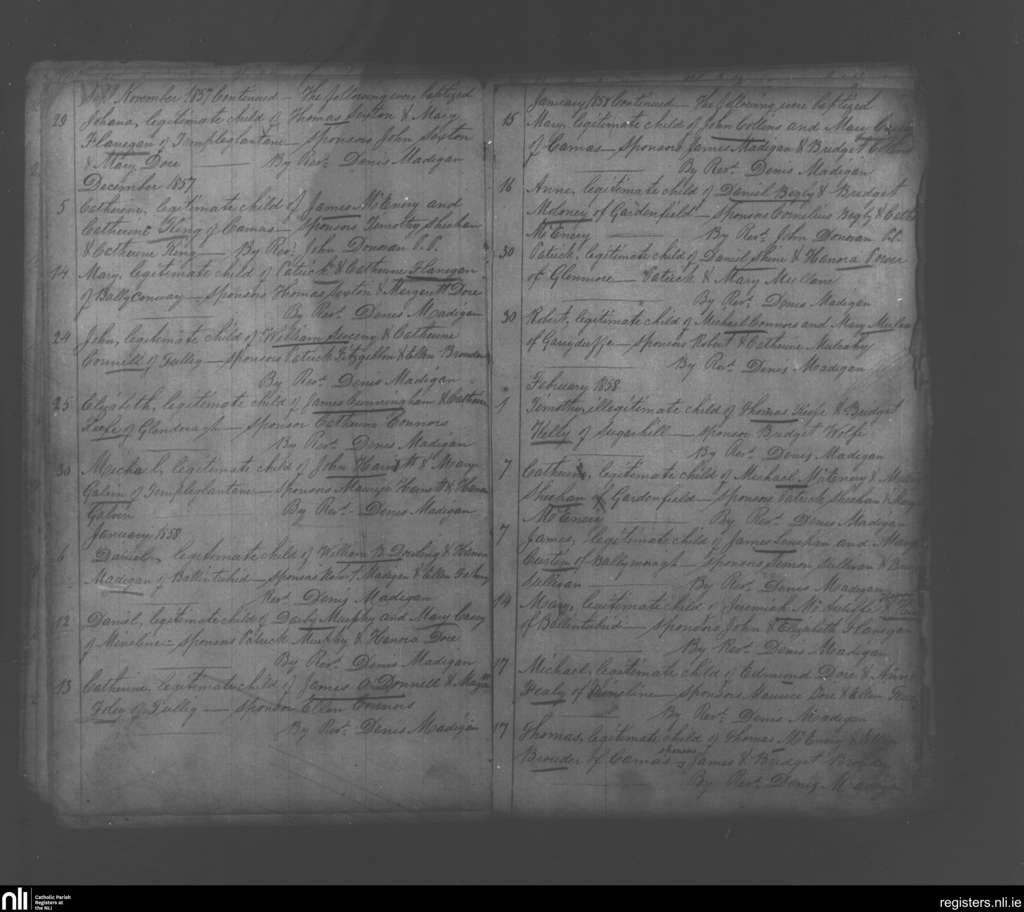 November 1857 Continued - The following were baptized
29 Johana, legitimate child of Thomas Sexton & Mary
Flanegan of Templeglantane - Sponsors John Sexton
& Mary Dore - By Revd. Denis Madigan
December 1857
5 Catherine, legitimate child of James McEnery and
Catherine King of Camas - Sponsors Timothy Sheehan
& Catherine King - By Revd. John Donovan P.P.
14 Mary, legitimate child of Patrick & Catherine Flanegan
of Ballyconway - Sponsors Thomas Sexton & Margarett Dore
By Revd. Denis Madigan
24 John, legitimate child of William & Catherine
Connell of Tulleg - Sponsors Patrick Fitzgibbon & Ellen
By Revd. Denis Madigan
25 Elizabeth, legitimate child of James Cunningham & Catherine
Keefe of - Sponsor Catherine Connors
By Revd. Denis Madigan
30 Michael, legitimate child of John & Mary
Galvin of Templeglantane - Sponsors &
Galvin By Revd. Denis Madigan
January 1858
6 Daniel, legitimate child of William & Hanora
Madigan of Ballintubid - Sponsors Robert Madigan & Ellen
Revd. Denis Madigan
12 Daniel, legitimate child of Darby Murphy and Mary Casey
of Minoline - Sponsors Patrick Murphy & Hanora Dore
By Revd. Denis Madigan
13 Catherine, legitimate child of James O Donnell &
Foley of Tulleg - Sponsor Ellen Connors
By Revd. Denis Madigan
January 1858 Continued - The following were baptized
15 Mary, legitimate child of John Collins and Mary
of Camas - Sponsors James Madigan & Bridget
By Revd. Denis Madigan
16 Anne, legitimate child of Daniel Begly & Bridget
Moloney of Gardenfield - Sponsors Cornelius Begly &
McEnery - By Revd. John Donovan
30 Patrick, legitimate child of Daniel Shine & Hanora Power
of Glenmore - Patrick & Mary Mullane
By Revd. Denis Madigan
30 Robert, legitimate child of Michael Connors and Mary
of - Sponsors Robert & Catherine Mulcahy
By Revd. Denis Madigan
February 1858
1 Timothy, illegitimate child of Thomas Keefe & Bridget
Kelly of Sugarhill - Sponsor Bridget Wolfe
By Revd. Denis Madigan
7 Catherine, legitimate child of Michael McEnery &
Sheehan of Gardenfield - Sponsors Patrick Sheehan &
McEnery - By Revd. Denis Madigan
7 James, legitimate child of James Lenehan and
Curtin of Ballymurragh - Sponsors Simon Sullivan &
Sullivan - By Revd. Denis Madigan
14 Mary, legitimate child of Jeremiah McAuliffe &
of Ballintubid - Sponsors John & Elizabeth Flanegan
By Revd. Denis Madigan
17 Michael, legitimate child of Edmond Dore & Anne
Healy of Minoline - Sponsors Maurice Dore & Ellen
By Revd. Denis Madigan
17 Thomas, legitimate child of Thomas McEnery &
Brouder of Camas - Sponsors James & Bridget Brouder
By Revd. Denis Madigan
nli Catholic Parish
Registers at
the NLI
registers.nli.ie